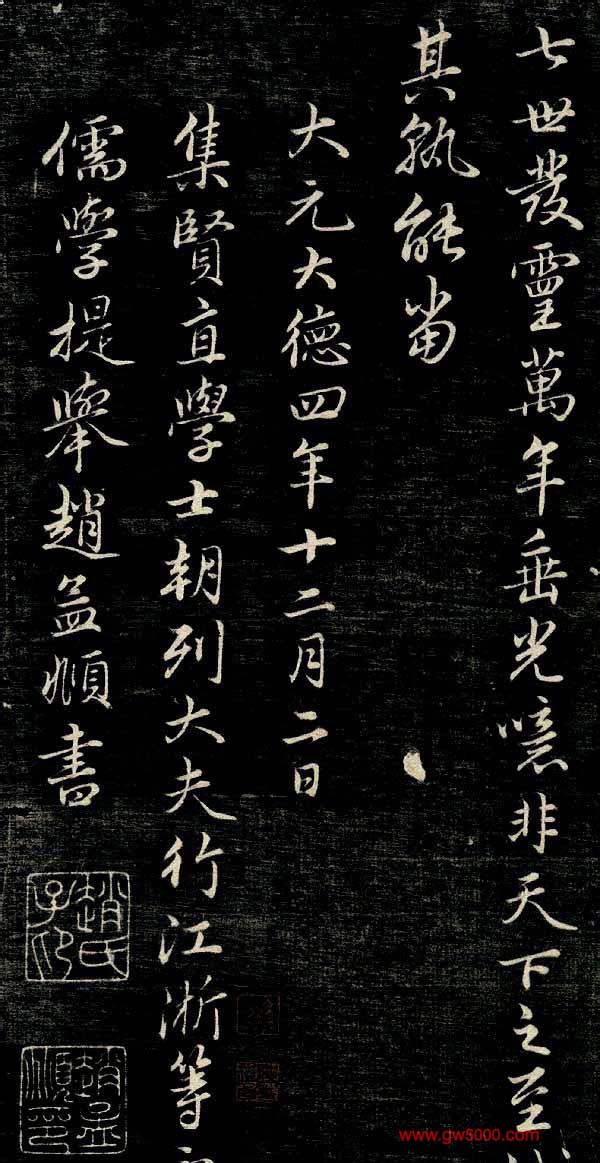 七世發靈萬年垂光噫非天下之至
其孰能當
大元大德四年十二月二日
集賢直學士朝列大夫行江浙等
儒學提舉趙孟頫書
趙氏子昂
趙孟頫印
www.gw5000.com